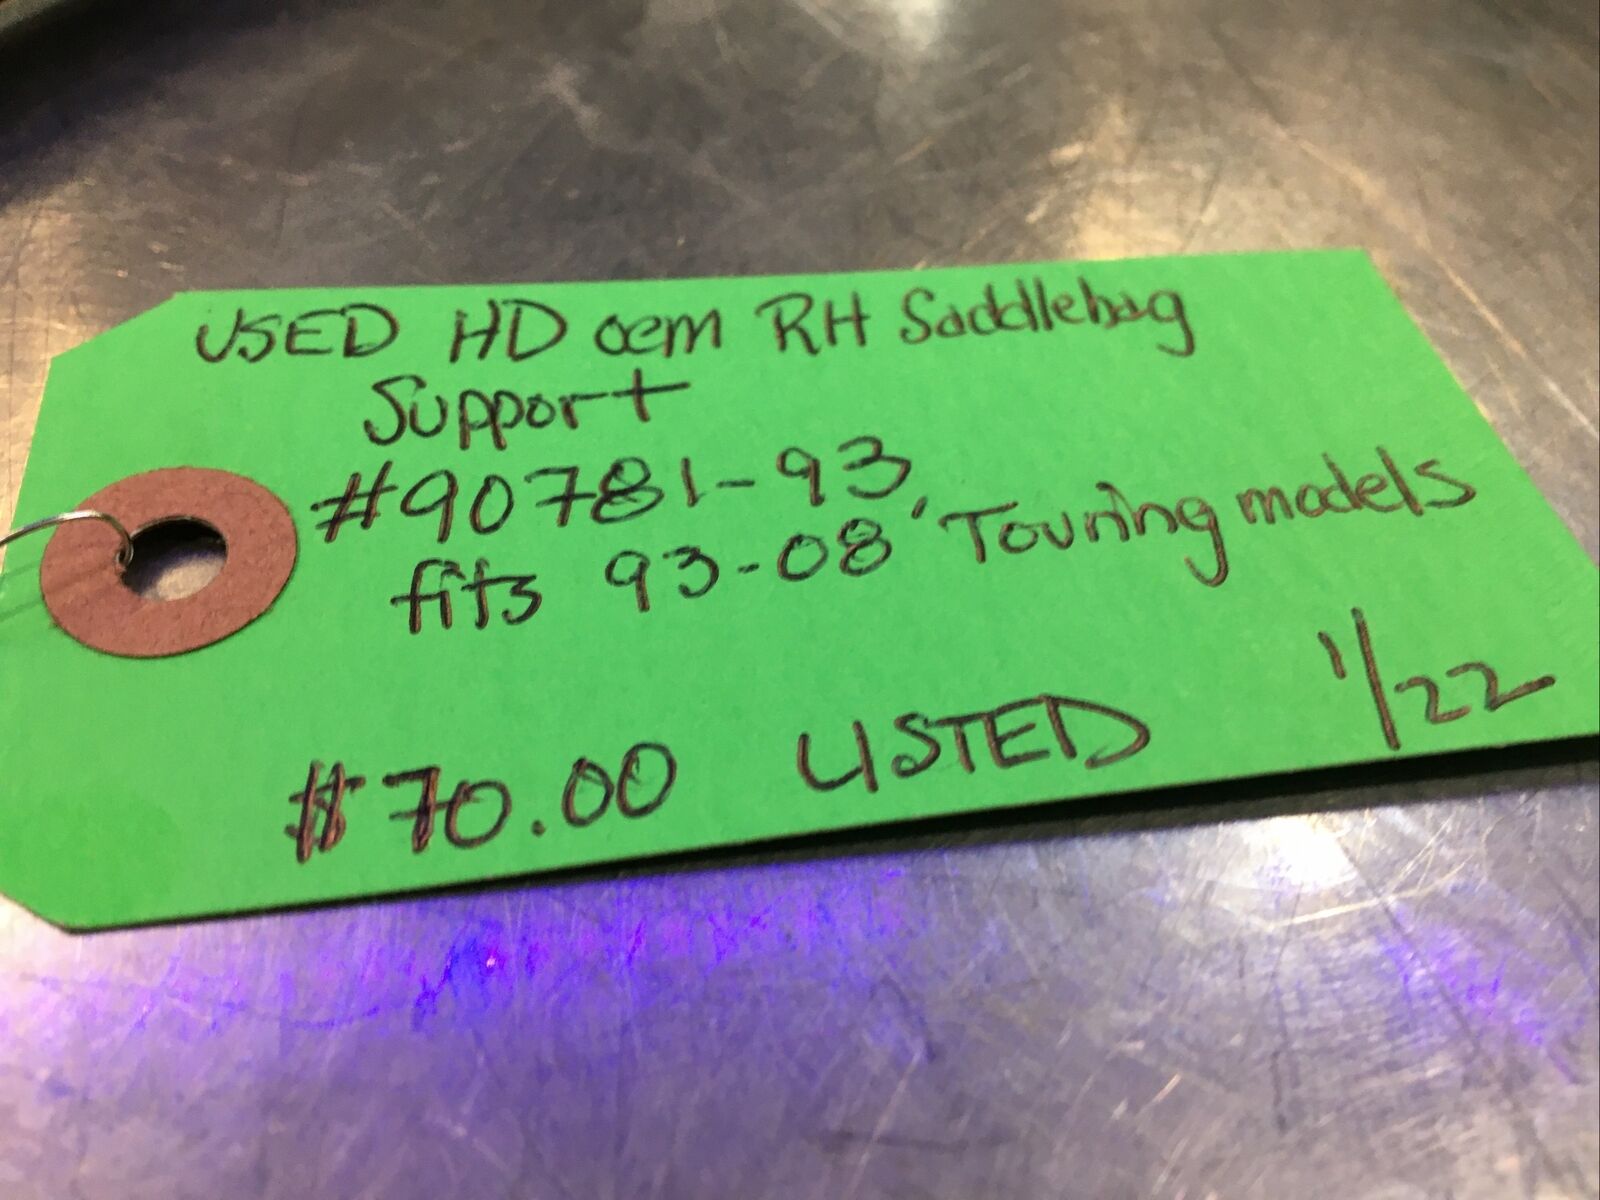 USED HD oem RH Saddlebag
Support
#90781-93
fits 93-08' Touring models
$70.00 LISTED 1/22